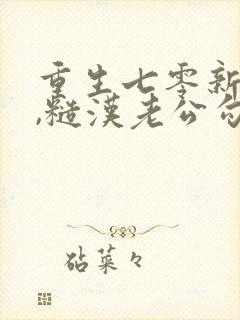 重生七零新
,糙汉老公勾
砧菜々